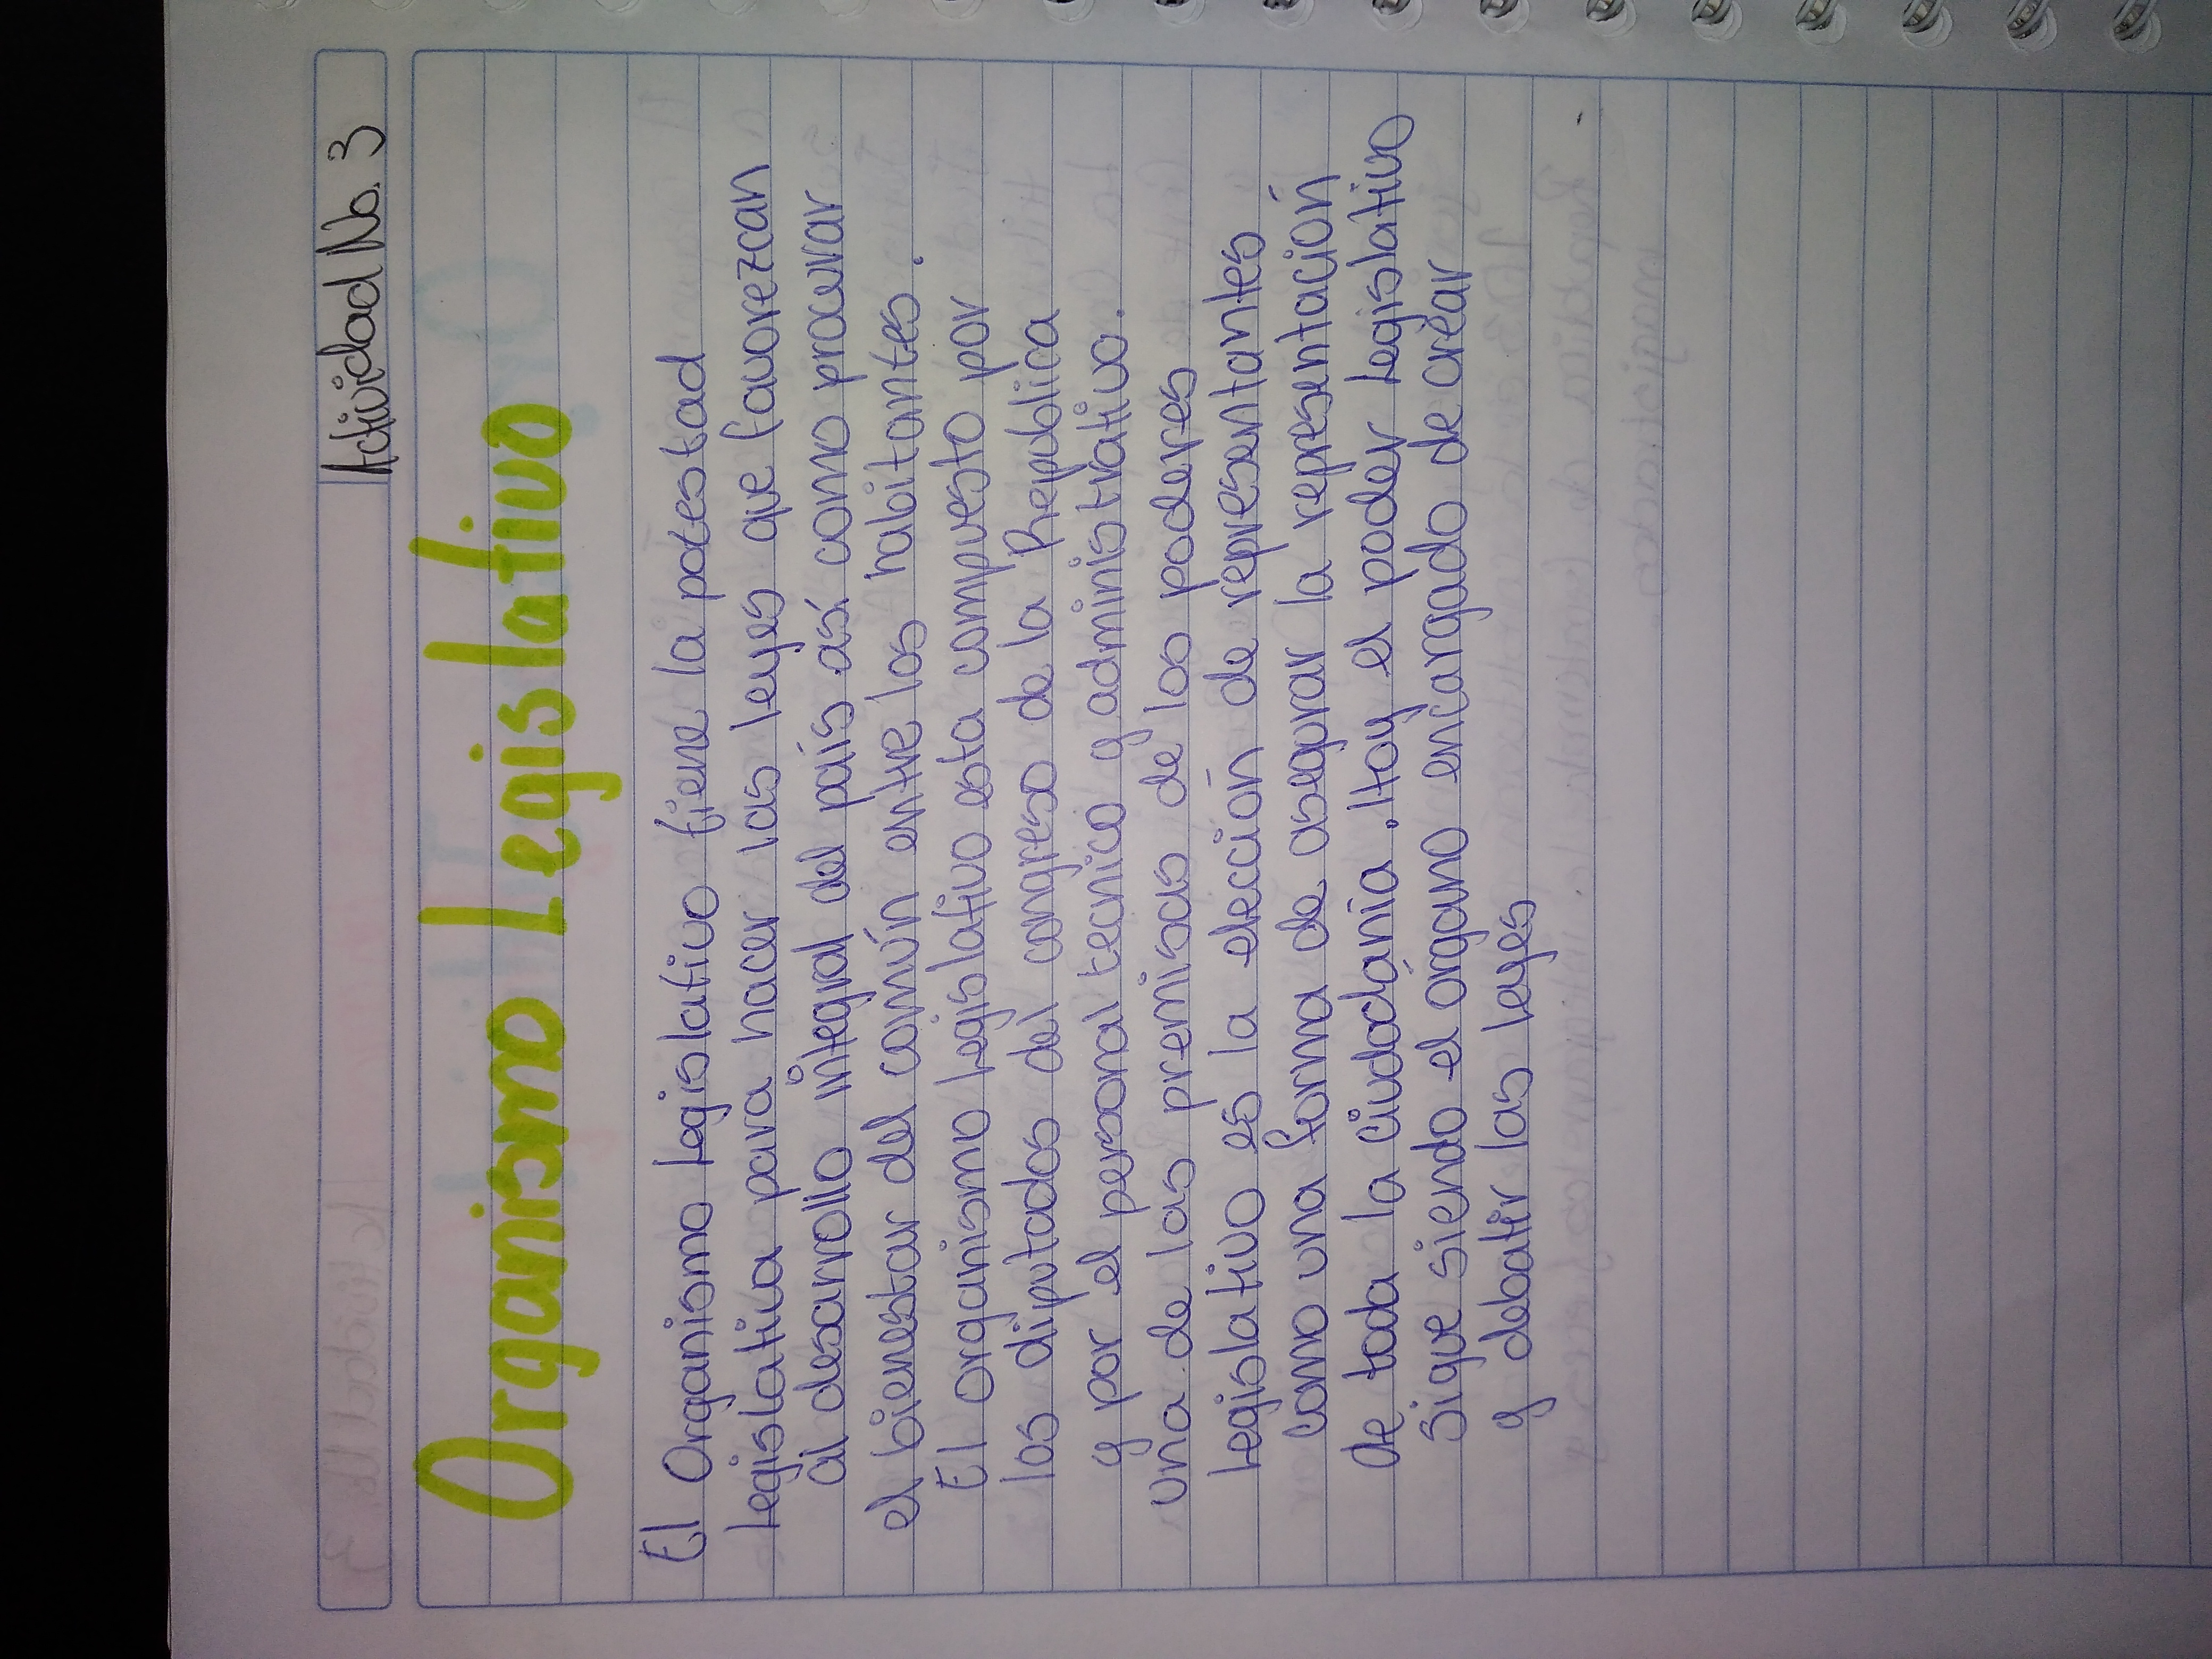 Actividad No. 3
Organismo Legislativo
El Organismo Legislativo tiene la potestad
legislativa para hacer las leyes que favorezcan
al desarrollo integral del país así como procurar
el bienestar del común entre los habitantes.
El organismo legislativo esta compuesto por
los diputados del congreso de la República
y por el personal tecnico y administrativo.
una de las premisas de los poderes
legislativo es la elección de representantes
como una forma de asegurar la representación
de toda la ciudadanía. Hoy el poder Legislativo
sigue siendo el órgano encargado de crear
y debatir las leyes